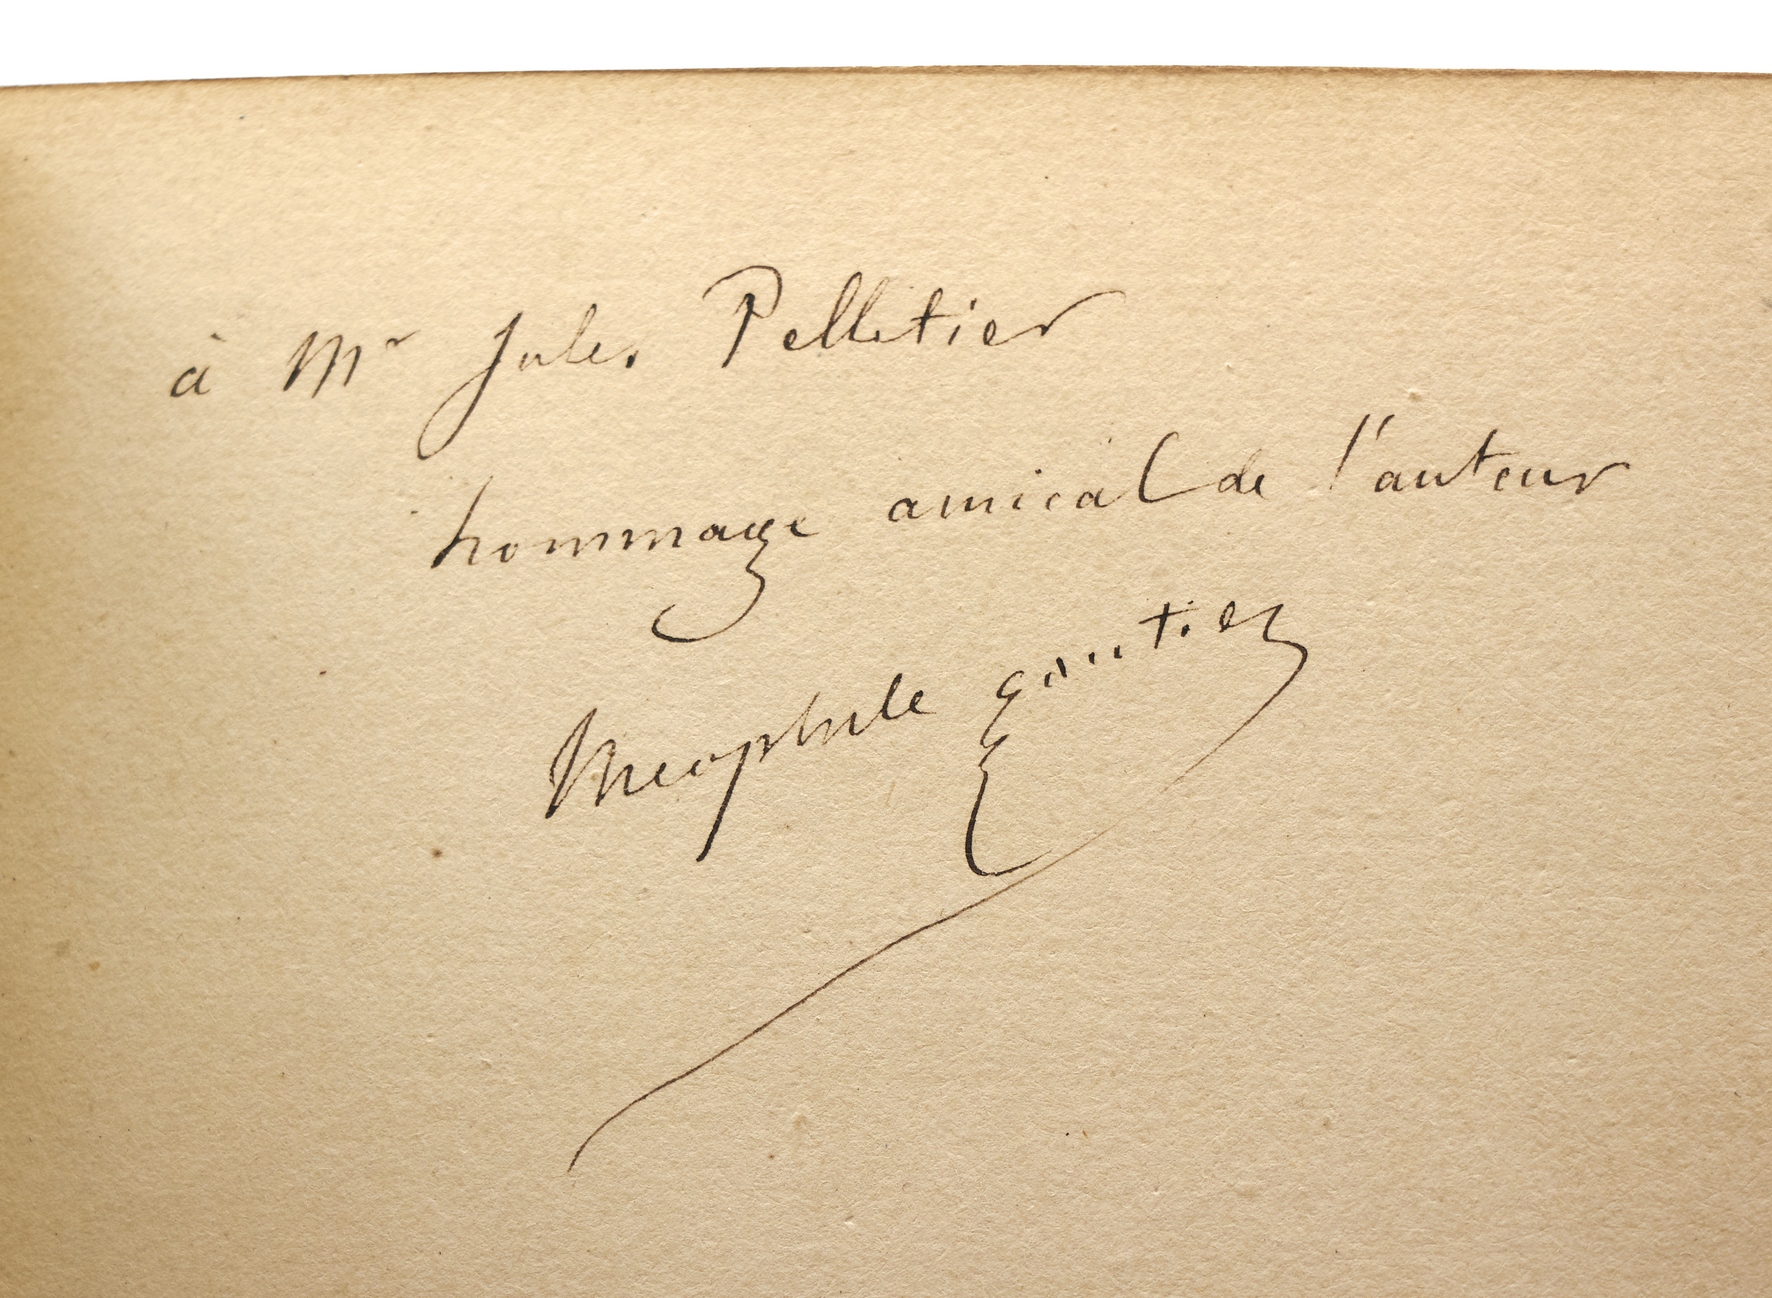 à Mr Jules Pelletier
hommage amical de l'auteur
Theophile gautier